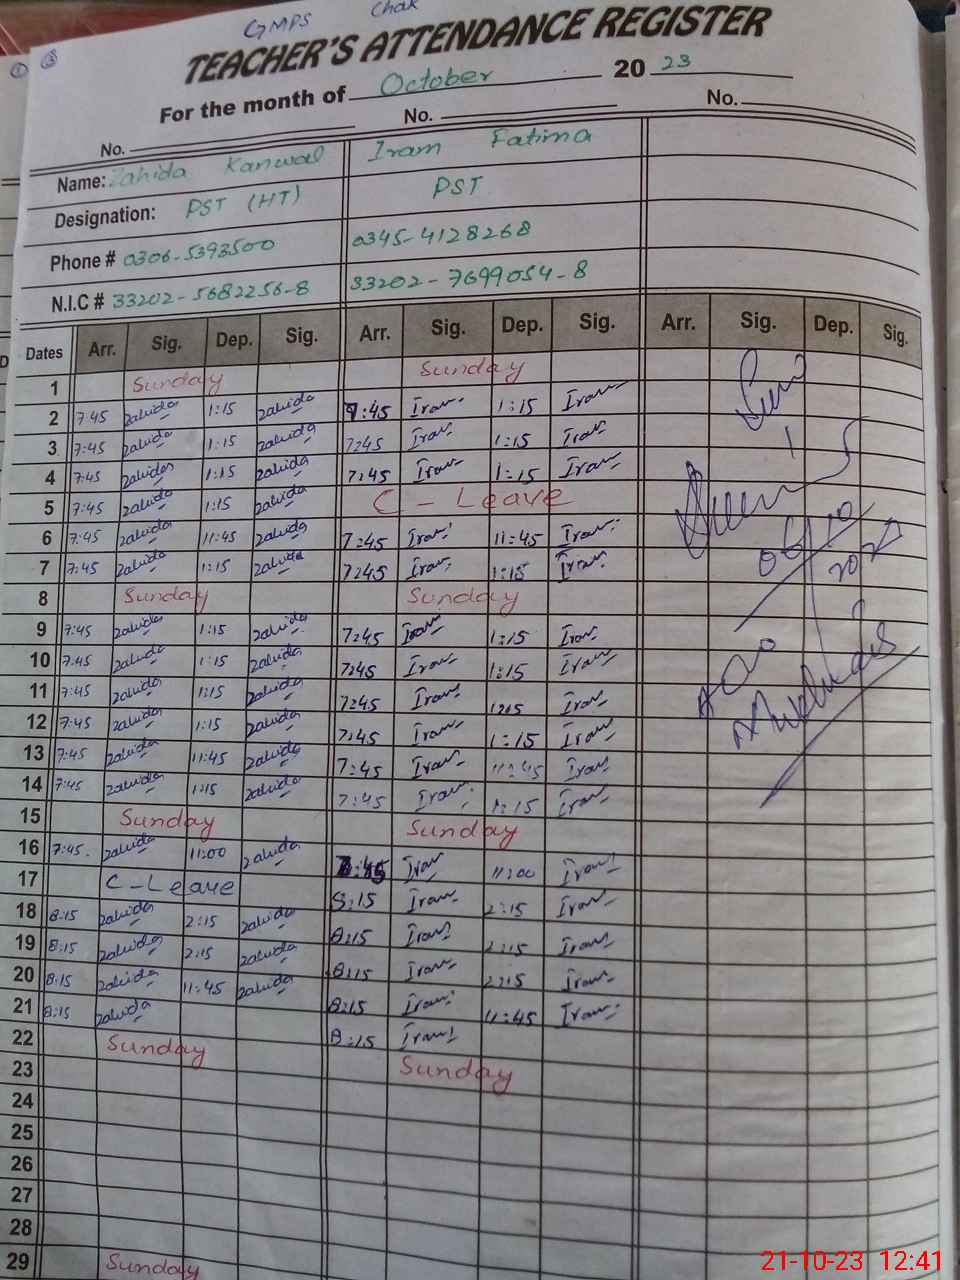 GMPS Chak
TEACHER'S ATTENDANCE REGISTER
For the month of October 2023
No. No. No.
Name: Zahida Kanwal Iram Fatima
Designation: PST (HT) PST
Phone # 0306-5393500 0345-4128268
N.I.C # 33202-5682256-8 33202-7699054-8
Dates Arr. Sig. Dep. Sig. Arr. Sig. Dep. Sig. Arr. Sig. Dep. Sig.
1 Sunday Sunday
2 7:45 Zahida 1:15 Zahida 7:45 Iram 1:15 Iram
3 7:45 Zahida 1:15 Zahida 7:45 Iram 1:15 Iram
4 7:45 Zahida 1:15 Zahida 7:45 Iram 1:15 Iram
5 7:45 Zahida 1:15 Zahida C - Leave
6 7:45 Zahida 11:45 Zahida 7:45 Iram 11:45 Iram
7 7:45 Zahida 1:15 Zahida 7:45 Iram 1:15 Iram
8 Sunday Sunday
9 7:45 Zahida 1:15 Zahida 7:45 Iram 1:15 Iram
10 7:45 Zahida 1:15 Zahida 7:45 Iram 1:15 Iram
11 7:45 Zahida 1:15 Zahida 7:45 Iram 1:15 Iram
12 7:45 Zahida 1:15 Zahida 7:45 Iram 1:15 Iram
13 7:45 Zahida 11:45 Zahida 7:45 Iram 11:45 Iram
14 7:45 Zahida 1:15 Zahida 7:45 Iram 1:15 Iram
15 Sunday Sunday
16 7:45 Zahida 11:00 Zahida 7:45 Iram 11:00 Iram
17 C - Leave 8:15 Iram 2:15 Iram
18 8:15 Zahida 2:15 Zahida 8:15 Iram 2:15 Iram
19 8:15 Zahida 2:15 Zahida 8:15 Iram 2:15 Iram
20 8:15 Zahida 11:45 Zahida 8:15 Iram 11:45 Iram
21 8:15 Zahida 8:15 Iram
22 Sunday Sunday
23
24
25
26
27
28
29 Sunday
21-10-23 12:41